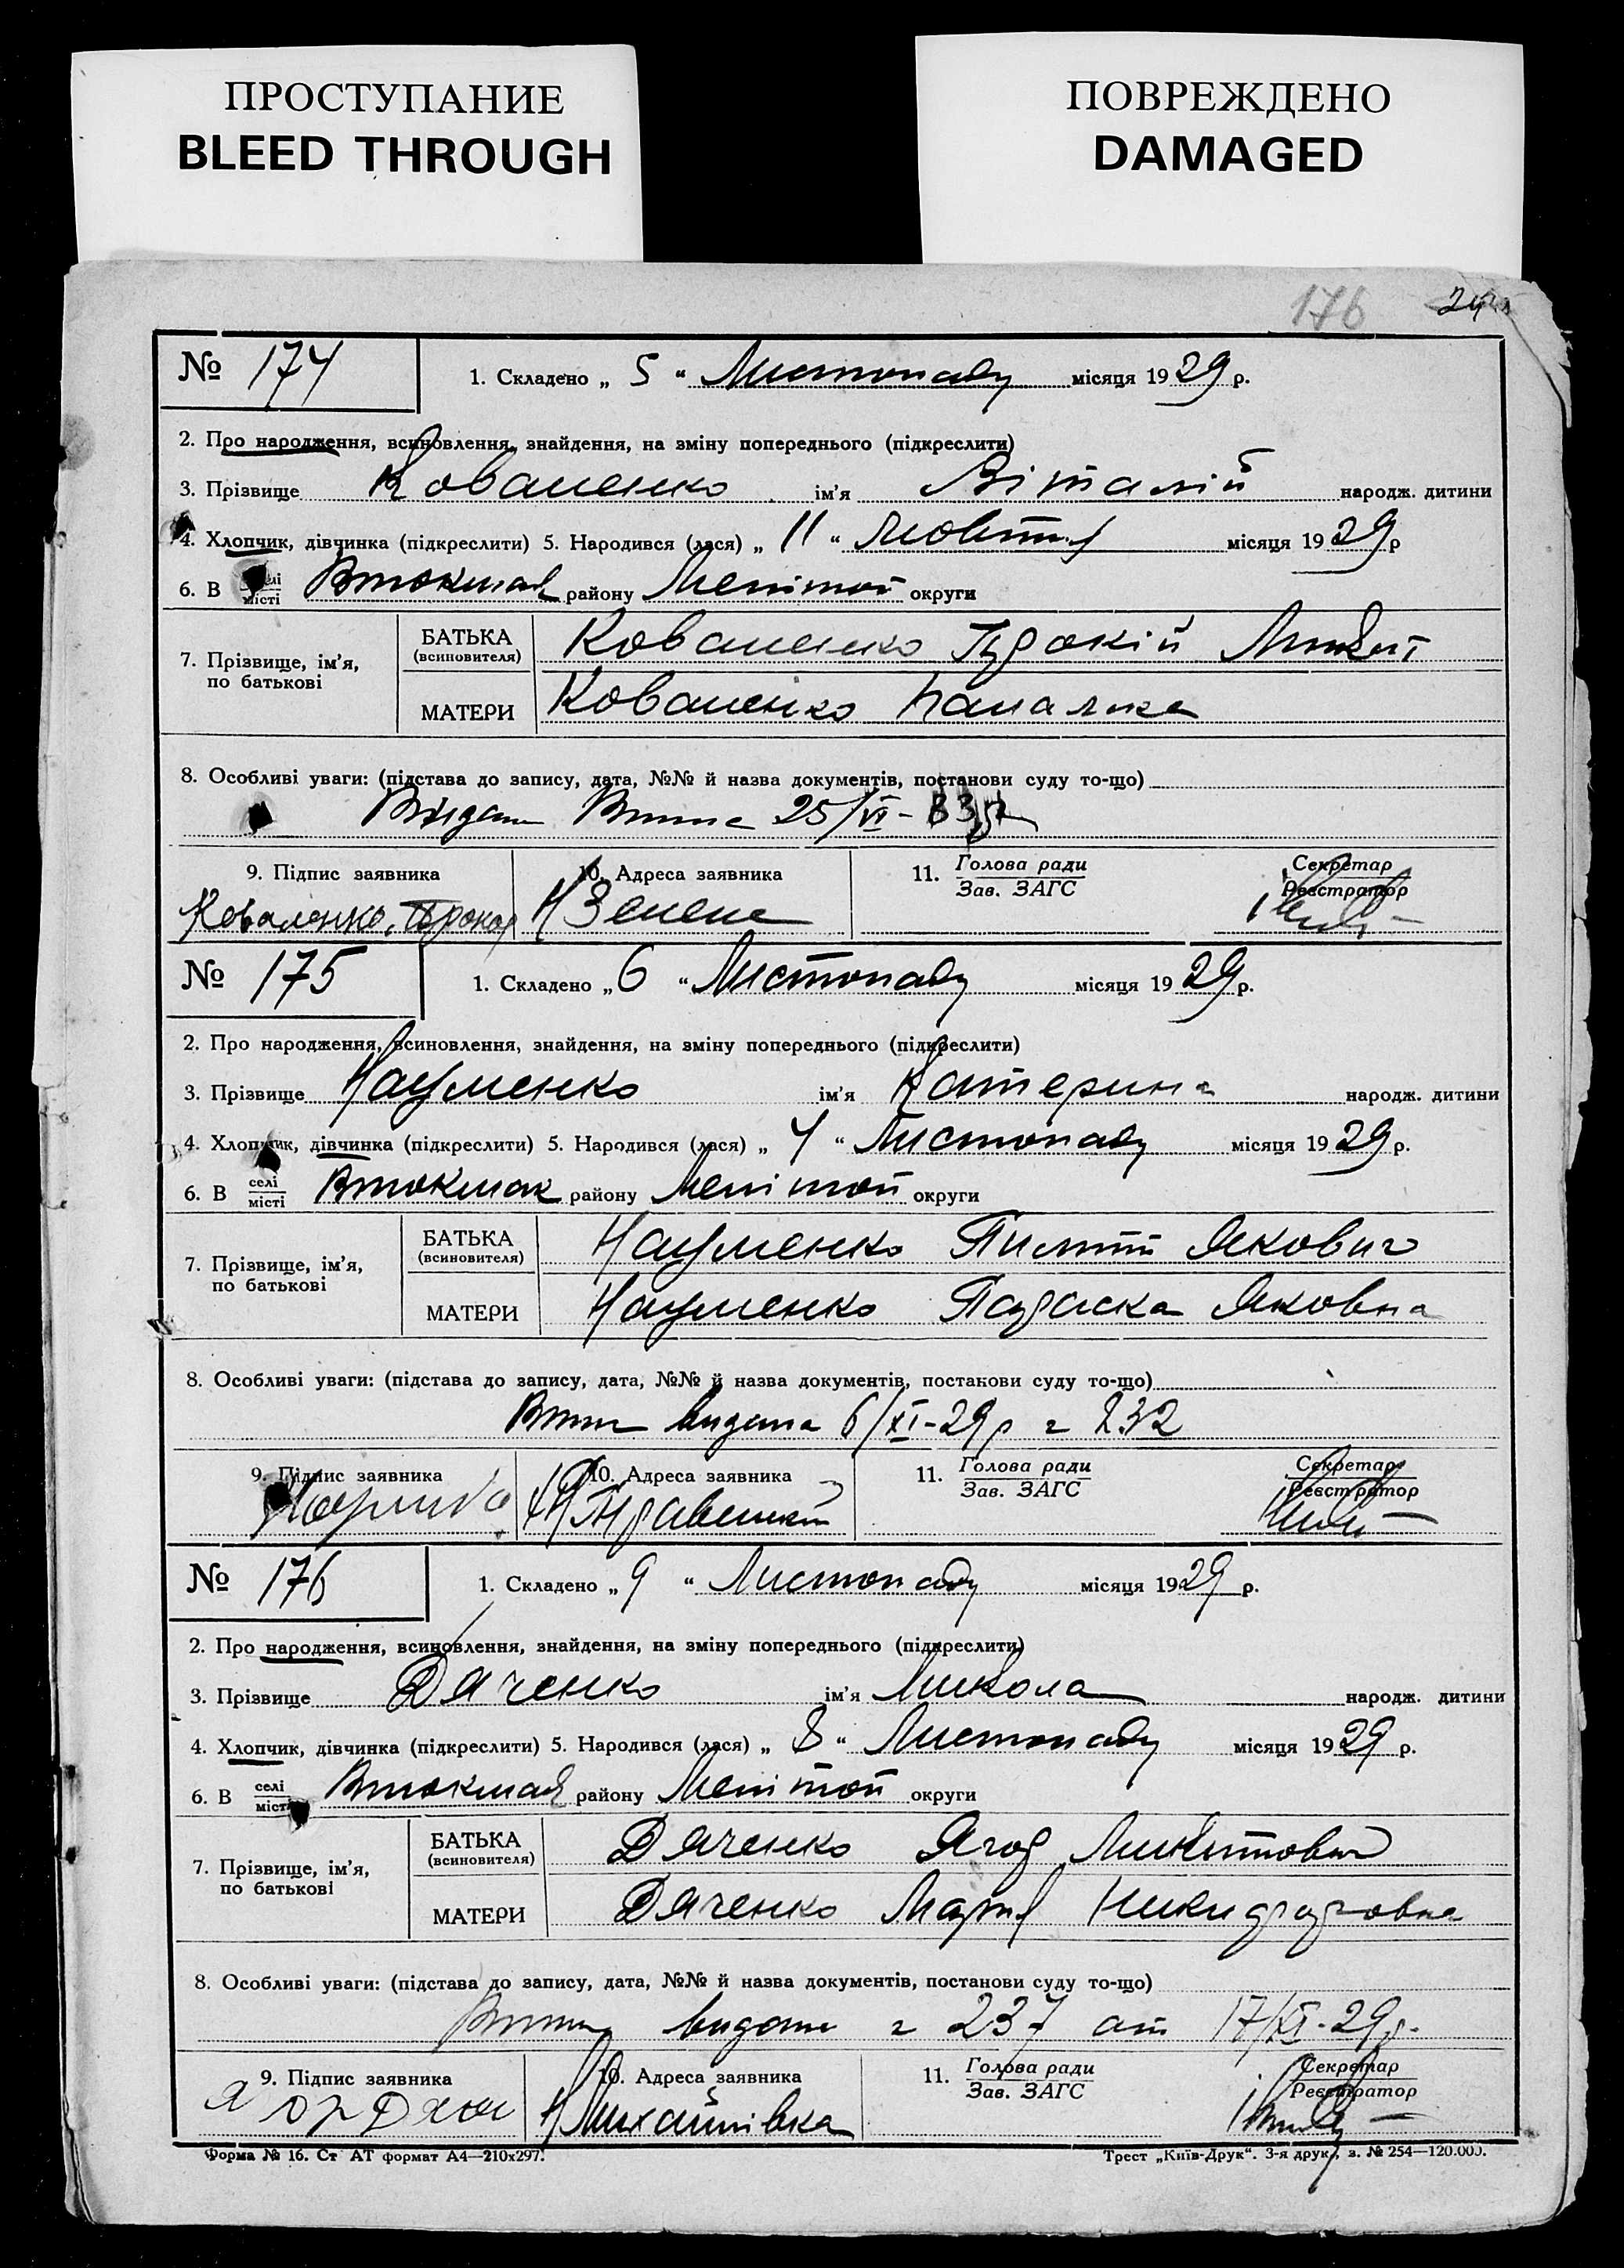 ПРОСТУПАНИЕ
BLEED THROUGH
ПОВРЕЖДЕНО
DAMAGED
176
№ 174
1. Складено „ 5 “ Листопаду місяця 1929 р.
2. Про народження, всиновлення, знайдення, на зміну попереднього (підкреслити)
3. Прізвище Коваленко ім'я Віталій народж. дитини
4. Хлопчик, дівчинка (підкреслити) 5. Народився (лася) „ 11 “ Жовтня місяця 1929 р
6. В селі місті Втокмак району Мелітоп округи
7. Прізвище, ім'я, по батькові
БАТЬКА (всиновителя) Коваленко
МАТЕРИ Коваленко
8. Особливі уваги: (підстава до запису, дата, №№ й назва документів, постанови суду то-що)
25/VI-
9. Підпис заявника
10. Адреса заявника
11. Голова ради Зав. ЗАГС
Секретар Реєстратор
Коваленко
№ 175
1. Складено „ 6 “ Листопаду місяця 1929 р.
2. Про народження, всиновлення, знайдення, на зміну попереднього (підкреслити)
3. Прізвище Науменко ім'я Катерина народж. дитини
4. Хлопчик, дівчинка (підкреслити) 5. Народився (лася) „ 4 “ Листопаду місяця 1929 р.
6. В селі місті Втокмак району Мелітоп округи
7. Прізвище, ім'я, по батькові
БАТЬКА (всиновителя) Науменко Якович
МАТЕРИ Науменко Параска Яковна
8. Особливі уваги: (підстава до запису, дата, №№ й назва документів, постанови суду то-що)
видана 6/XI-29 р 232
9. Підпис заявника
10. Адреса заявника
11. Голова ради Зав. ЗАГС
Секретар Реєстратор
№ 176
1. Складено „ 9 “ Листопаду місяця 1929 р.
2. Про народження, всиновлення, знайдення, на зміну попереднього (підкреслити)
3. Прізвище Дяченко ім'я Микола народж. дитини
4. Хлопчик, дівчинка (підкреслити) 5. Народився (лася) „ 8 “ Листопаду місяця 1929 р.
6. В селі місті Втокмак району Мелітоп округи
7. Прізвище, ім'я, по батькові
БАТЬКА (всиновителя) Дяченко Микитович
МАТЕРИ Дяченко Мария
8. Особливі уваги: (підстава до запису, дата, №№ й назва документів, постанови суду то-що)
237 от 17/XI-29 р.
9. Підпис заявника
10. Адреса заявника
11. Голова ради Зав. ЗАГС
Секретар Реєстратор
Михайлівка
Форма № 16. Ст АТ формат А4—210х297.
Трест „Київ-Друк“. 3-я друк., з. № 254—120.000.